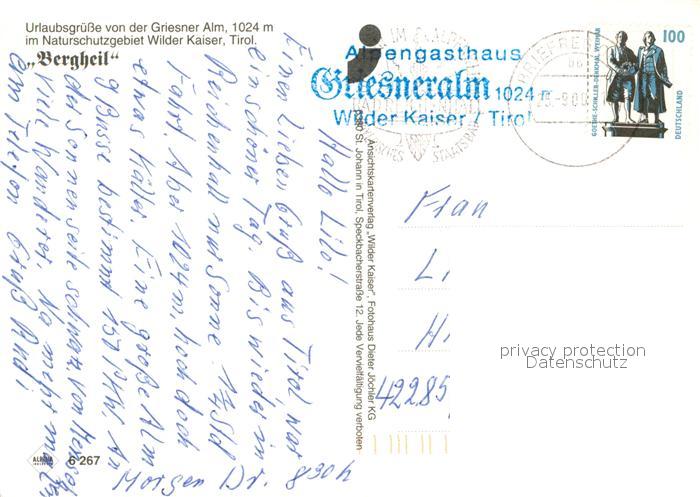 Urlaubsgrüße von der Griesner Alm, 1024 m
im Naturschutzgebiet Wilder Kaiser, Tirol.
„Bergheil“
Hallo Lilo!
Einen lieben Gruß aus Tirol war
ein schöner Tag. Bis wieder in
Reichenhall nur Sonne. 1½ Std
Fahrt. Aber 1024 m. hoch doch
etwas Kälter. Eine große Alm
9 Busse bestimmt 150 PKW. An
der Sonnenseite schwarz von Mensch
will Wandern. Na mehr mal
am Telefon Gruß
Morgen Dr. 8³⁰ h
ALPINA
6 267
Alpengasthaus
Griesneralm 1024 m
Wilder Kaiser / Tirol
BRIEFZE
STAATSBAD
100
GOETHE-SCHILLER-DENKMAL WEIMAR
DEUTSCHLAND
Ansichtskartenverlag „Wilder Kaiser“, Fotohaus Dieter Jöchler KG
6380 St. Johann in Tirol, Speckbacherstraße 12, Jede Vervielfältigung verboten
Frau
L
H
42285
privacy protection
Datenschutz